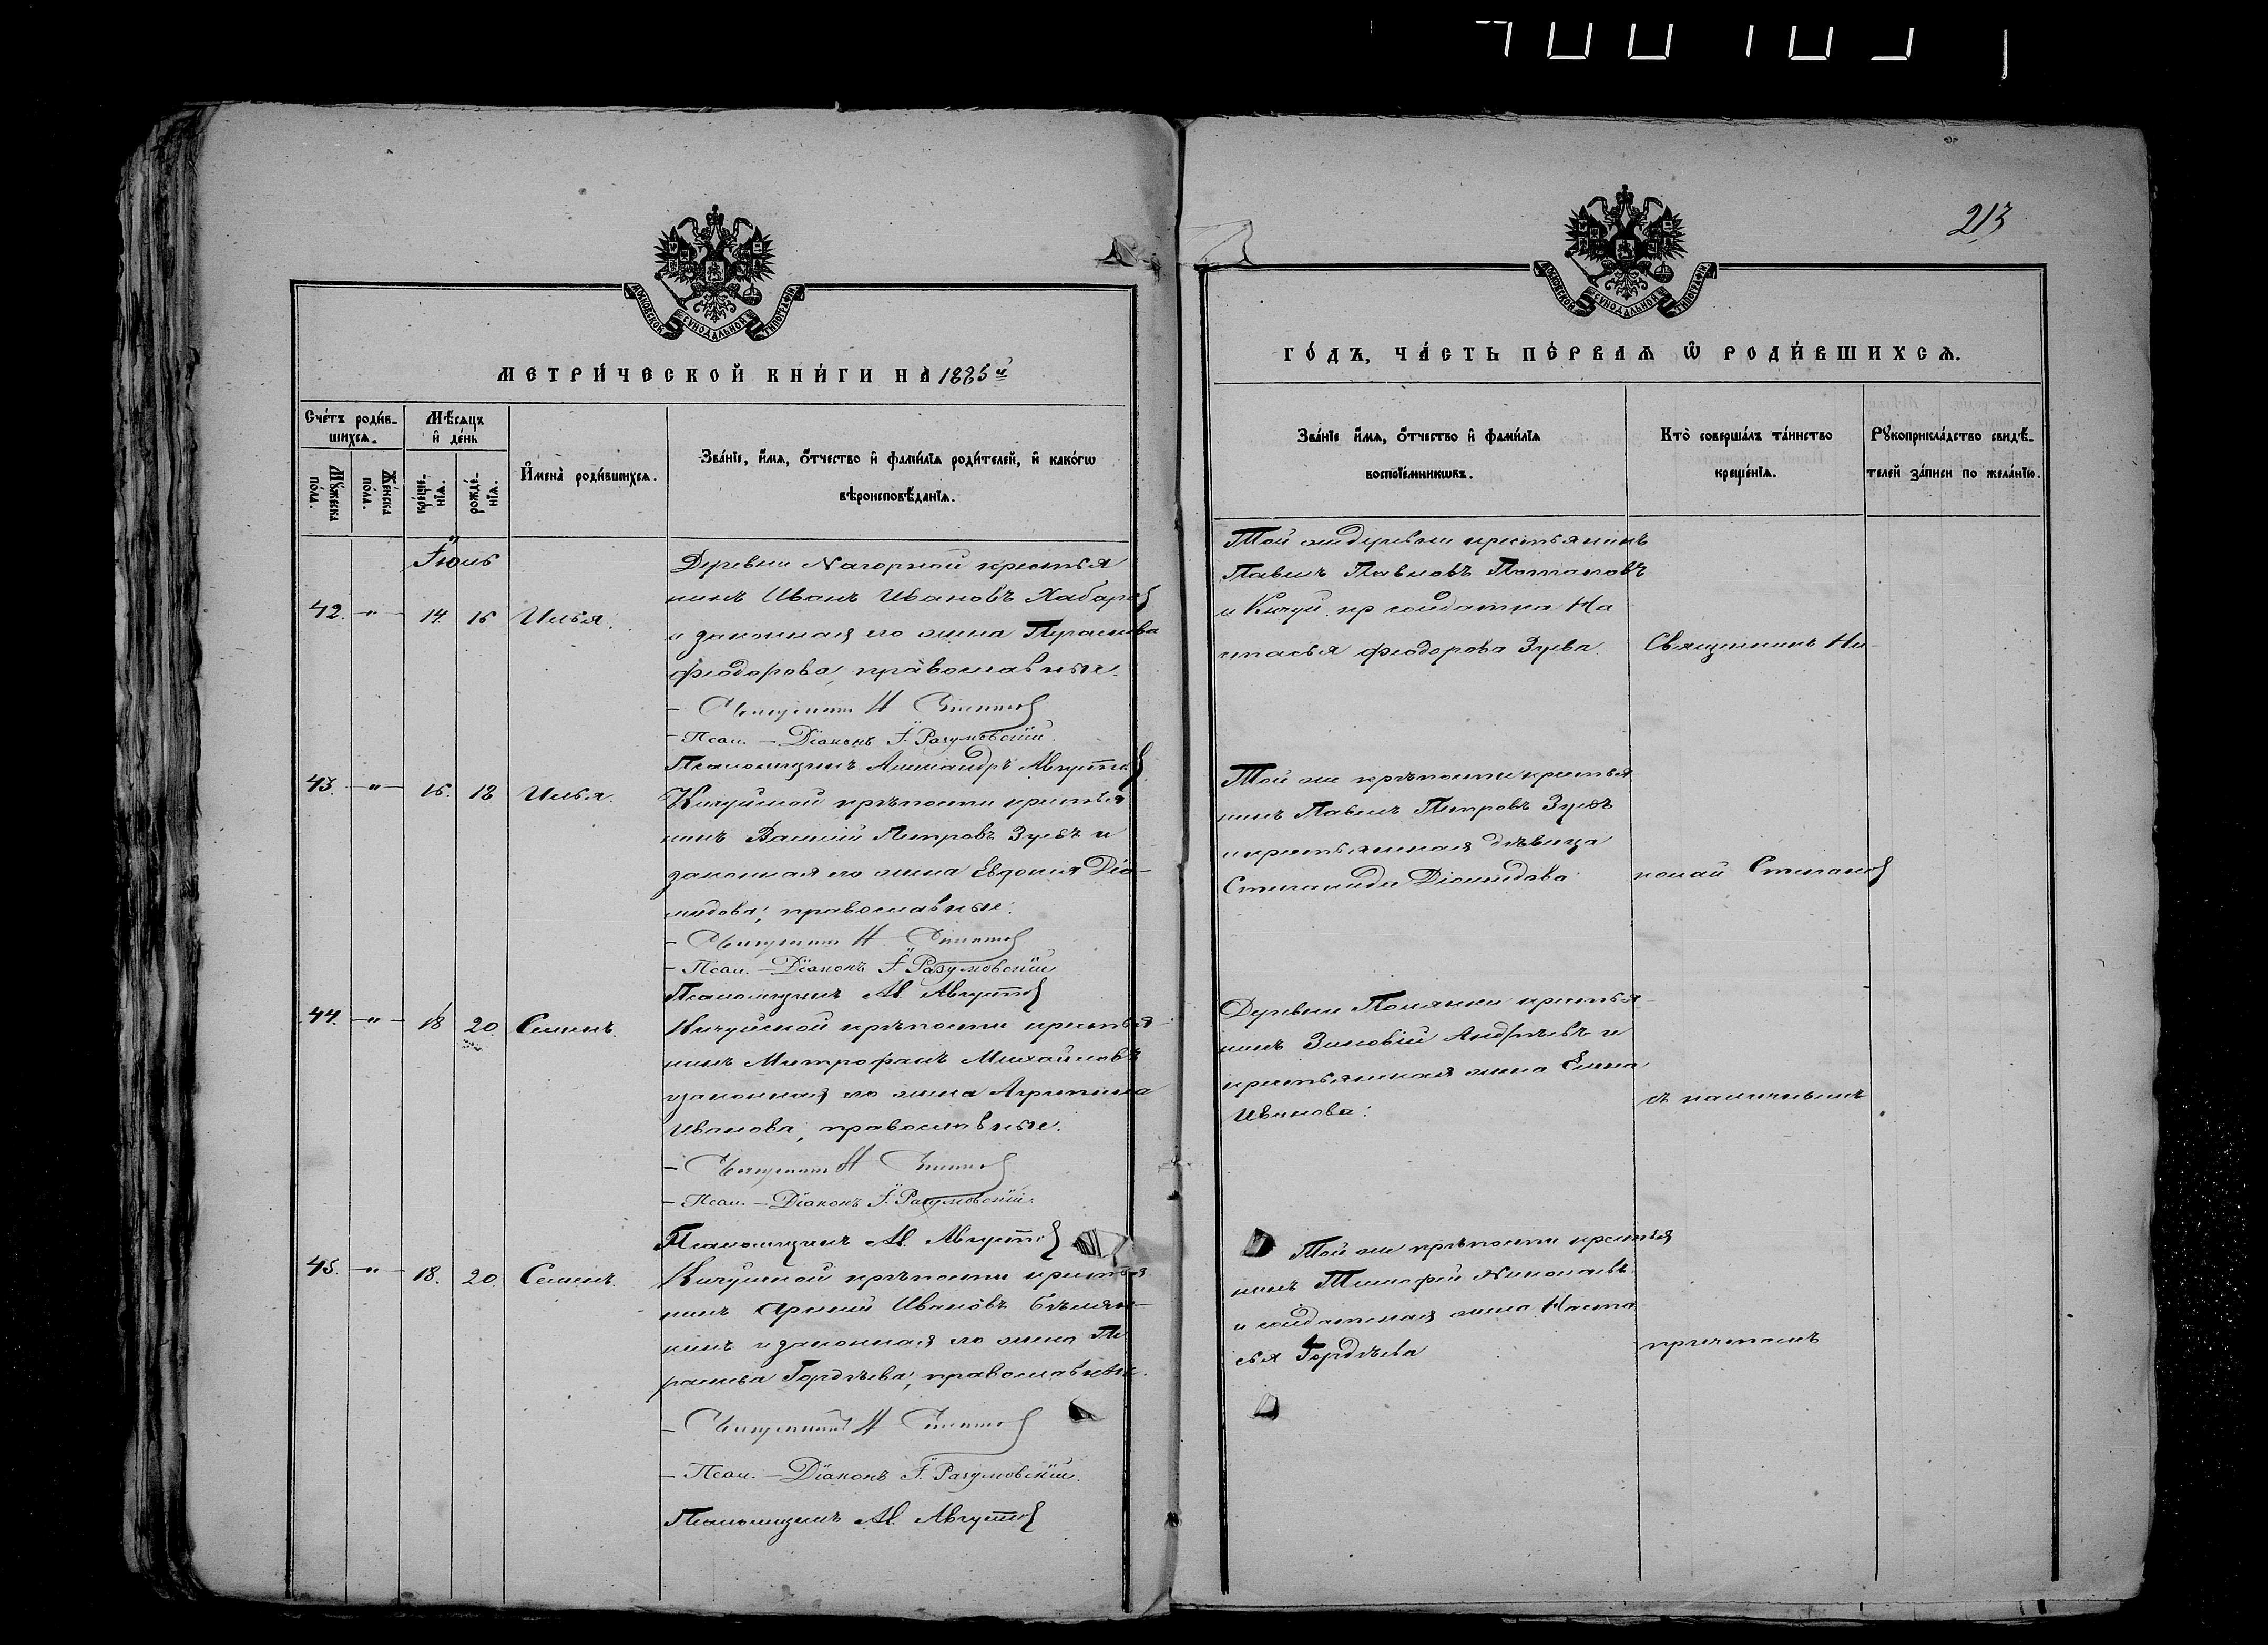 213
МОСКОВСКОЙ СУНОДАЛЬНОЙ ТИПОГРАФІИ
МЕТРИ́ЧЕСКОЙ КНИ́ГИ НА 1885 й
Сче́тъ роди́в-
шихсѧ.
Мѣ́сяцъ
и҆ де́нь
Мꙋ́жеска
по́ла.
Же́нска
по́ла.
креще́-
нїѧ.
рожде́-
нїѧ.
И҆мена̀ роди́вшихсѧ.
Зва́нїе, и҆́мѧ, ѻ҆́тчество и҆ фами́лїѧ роди́телей, и҆ како́гѡ
вѣроисповѣ́данїѧ.
Іюнь
Деревни Нагорной крестья
42. " 14 16 Илья.
нинъ Иванъ Ивановъ Хабаров
и законная его жена Параскева
Феодорова, православные.
- Священникъ Н Степанов
- Псал. - Діаконъ І. Разумовскій.
Псаломщикъ Александръ Августов
43. " 16. 18 Илья.
Кичуйской крѣпости крестья
нинъ Василій Петровъ Зуевъ и
законная его жена Евдокія Діо-
мидова, православные.
- Священникъ Н. Степанов
- Псал. - Діаконъ І. Разумовскій
Псаломщикъ Ал. Августов
44. " 18 20. Семенъ.
Кичуйской крѣпости крестья-
нинъ Митрофанъ Михайловъ
и законная его жена Агрипина
Иванова, православные.
- Священникъ Н Степанов
- Псал. - Діаконъ І. Разумовскій.
Псаломщикъ Ал. Августов
45. " 18. 20. Семенъ.
Кичуйской крѣпости крестья
нинъ Иванов
нинъ и законная его жена Па
раскева Гордѣева, православные.
- Священникъ Н Степанов
- Псал. - Діаконъ І. Разумовскій.
Псаломщикъ Ал. Августов
МОСКОВСКОЙ СУНОДАЛЬНОЙ ТИПОГРАФІИ
ГО́ДЪ, ЧА́СТЬ ПЕ́РВАЯ Ѡ҆ РОДИ́ВШИХСѦ.
Зва́нїе и҆́мѧ, ѻ҆́тчество и҆ фами́лїѧ
воспрїе́мникѡвъ.
Кто̀ соверша́лъ та́инство
креще́нїѧ.
Рꙋкоприкла́дство свидѣ́-
телей за́писи по жела́нїю.
Той же деревни крестьянинъ
Павелъ Павловъ Потаповъ
и Кичуй. кр солдатка На
стасья Феодорова Зуева.
Священникъ Ни-
Той же крѣпости крестья
нинъ Павелъ Петровъ Зуевъ
и крестьянская дѣвица
Степанида Діомидова
колай Степанов
Деревни Полянки крестья
нинъ Зиновій Андрѣевъ и
крестьянская жена Елена
Иванова.
съ наличнымъ
Той же крѣпости крестья
нинъ Тимофей Николаевъ
и солдатская жена Наста
сья Гордѣева
причтомъ